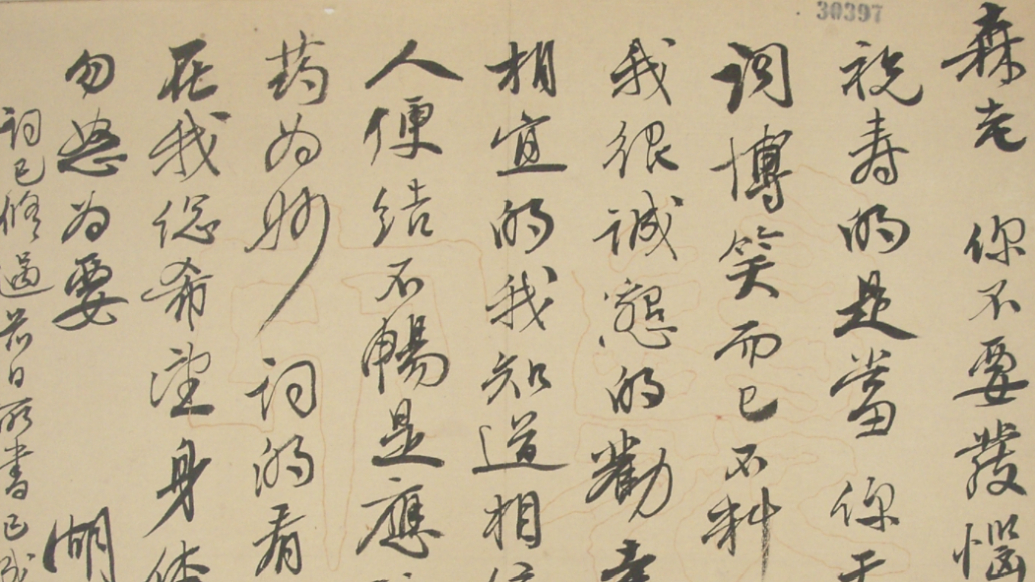 30397
森老 你不要發惱
祝寿的是當 你
词博笑而已不料
我很诚懇的勸
相宜的我知道相
人便结不暢是應
药为妙 词的看
在我總希望身体
勿怒为要 湖
词已修過前日所書已